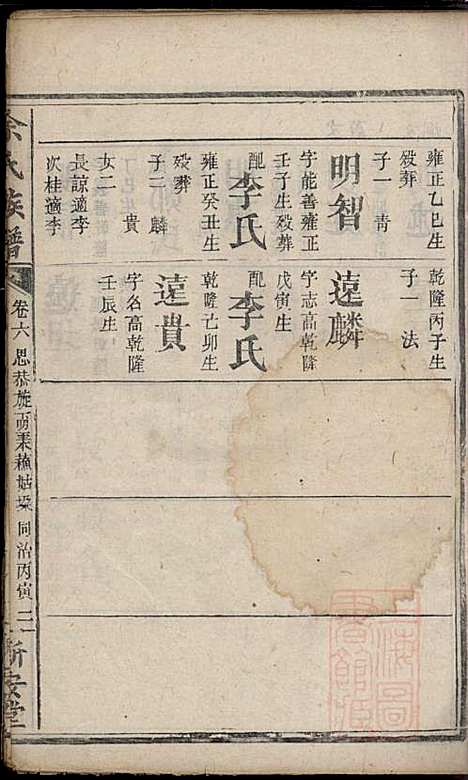 雍正乙巳生
歿葬
子一 青
明智
字能善雍正
壬子生歿葬
配
李氏
雍正癸丑生
歿葬
子二 麟
貴
女二
長諒適李
次桂適李
乾隆丙子生
子一 法
遠麟
字志高乾隆
戊寅生
配
李氏
乾隆己卯生
遠貴
字名高乾隆
壬辰生
余氏族譜
卷六
思恭旋
同治丙寅
二
新安堂
上海圖
書館